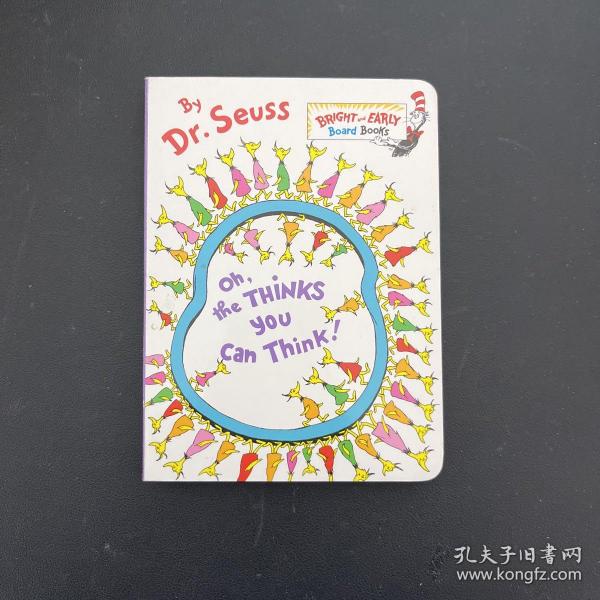 By
Dr. Seuss
BRIGHT and EARLY
Board Books
Oh,
the THINKS
you
can Think!
孔夫子旧书网
www.kongfz.com